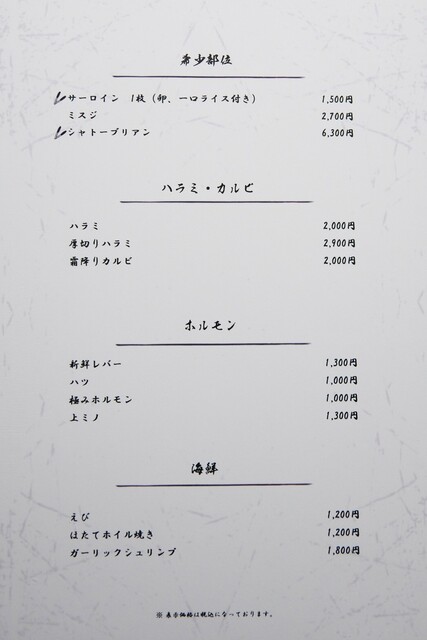 希少部位
サーロイン 1枚（卵、一口ライス付き） 1,500円
ミスジ 2,700円
シャトーブリアン 6,300円
ハラミ・カルビ
ハラミ 2,000円
厚切りハラミ 2,900円
霜降りカルビ 2,000円
ホルモン
新鮮レバー 1,300円
ハツ 1,000円
極みホルモン 1,000円
上ミノ 1,300円
海鮮
えび 1,200円
ほたてホイル焼き 1,200円
ガーリックシュリンプ 1,800円
※ 表示価格は税込になっております。